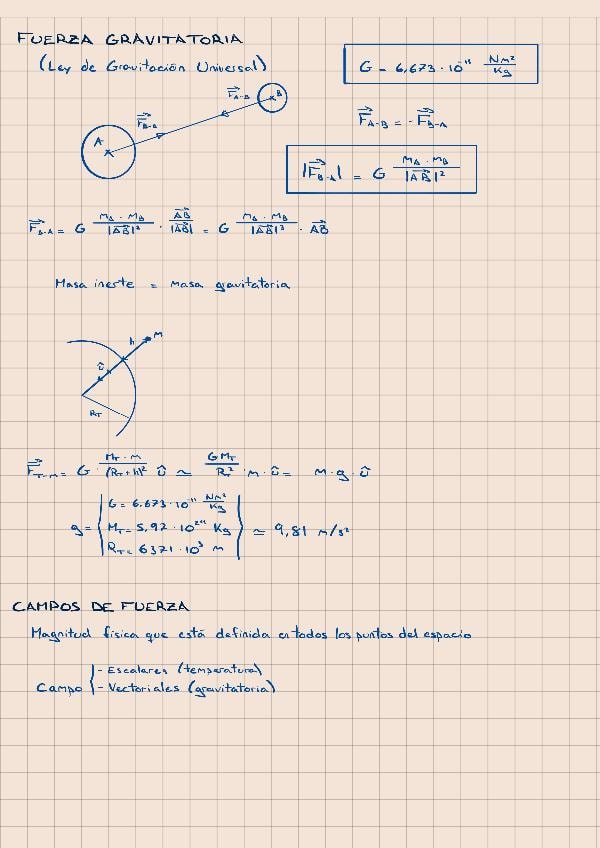 FUERZA GRAVITATORIA
(Ley de Gravitación Universal)
G = 6,673 · 10⁻¹¹ Nm²/Kg
F⃗A-B
B
F⃗B-A
A
F⃗A-B = -F⃗B-A
|F⃗B-A| = G MA · MB / |A⃗B|²
F⃗B-A = G MA · MB / |A⃗B|² · A⃗B / |A⃗B| = G MA · MB / |A⃗B|³ · A⃗B
Masa inerte = masa gravitatoria
h
M
û
RT
F⃗T-M = G MT · m / (RT + h)² û ≃ GMT / RT² · m · û = m · g · û
G = 6,673 · 10⁻¹¹ Nm²/Kg
g = { MT = 5,92 · 10²⁴ Kg } ≃ 9,81 m/s²
RT = 6371 · 10³ m
CAMPOS DE FUERZA
Magnitud física que está definida en todos los puntos del espacio
Campo { - Escalares (temperatura)
- Vectoriales (gravitatoria)